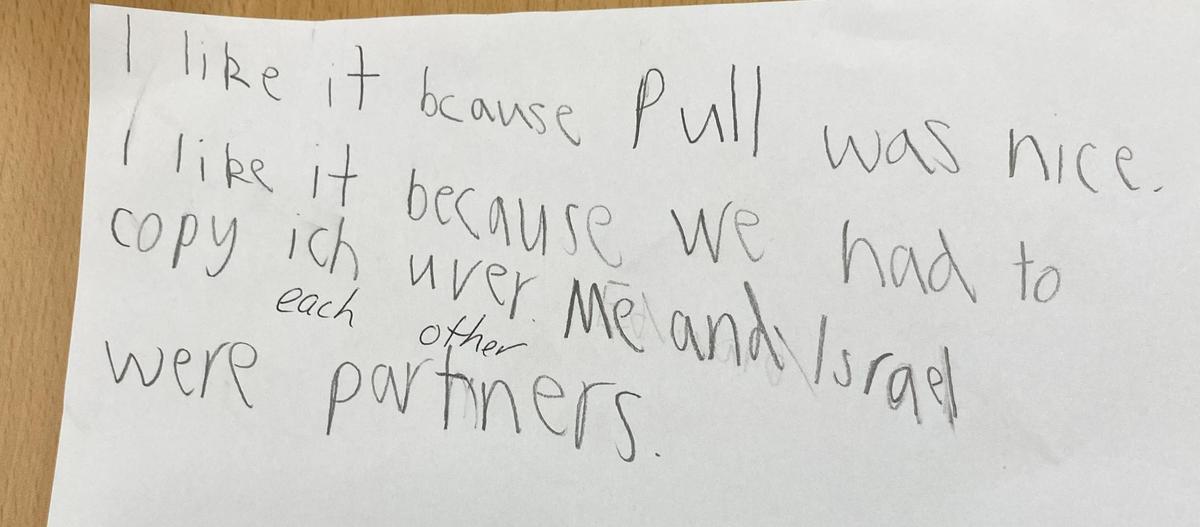 I like it bcause Pull was nice.
I like it because we had to
copy ich uver. Me and Israel
each other
were partners.